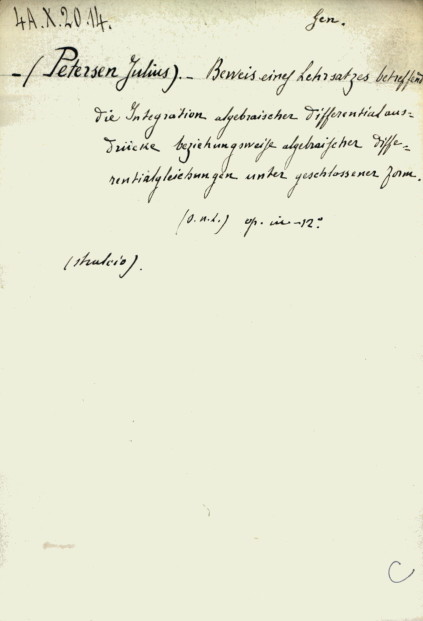 4A.X.20.14.
Gen.
-(Petersen Julius).- Beweis eines Lehrsatzes betreffend
die Integration algebraischer Differentialaus-
drücke beziehungsweise algebraischer diffe-
rentialgleichungen unter geschlossener Form.
(s.n.t.) op. in-12°.
(stralcio).
C